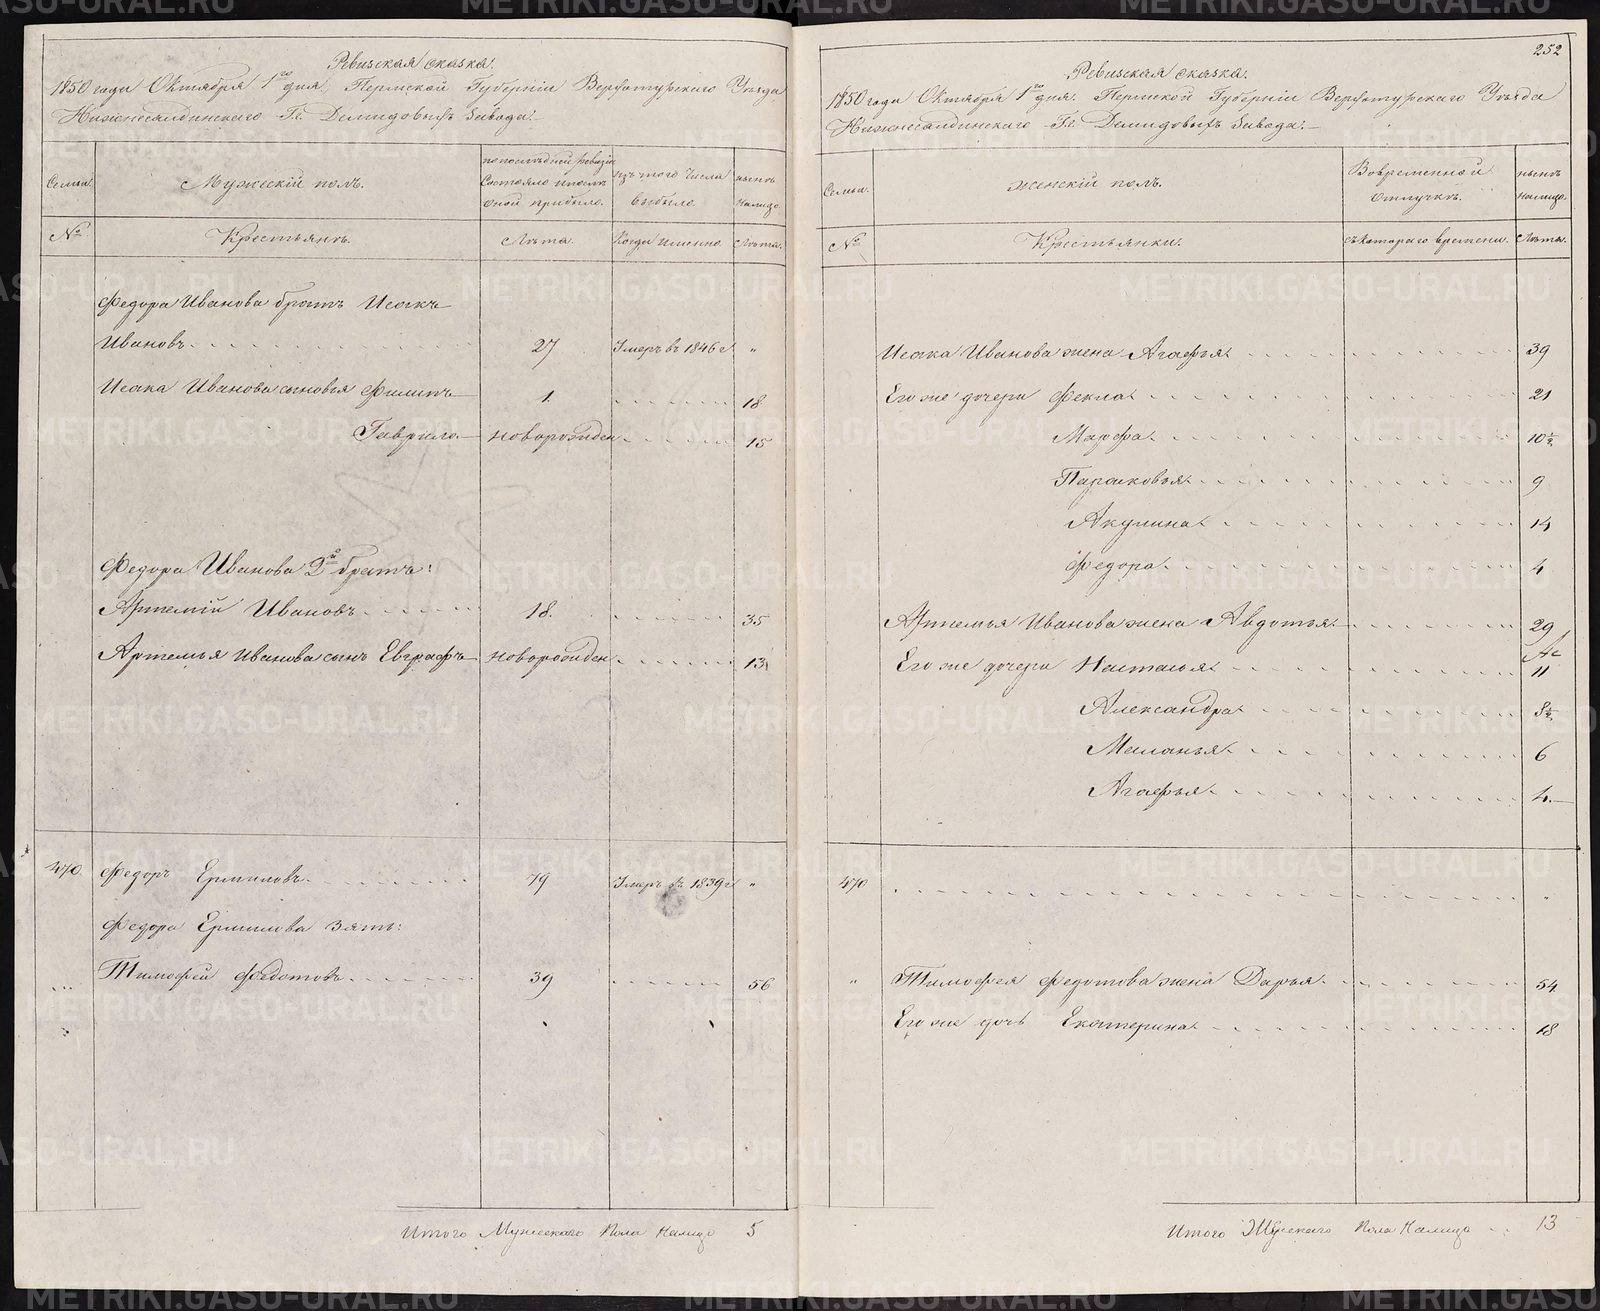 Ревизская сказка.
1850 года Октября 1го дня, Пермской Губернiи Верхотурскаго Уѣзда
Нижнесалдинскаго Гг. Демидовыхъ Завода.
Семьи.
Мужескiй полъ.
по послѣдней ревизiи состояло и послѣ оной прибыло.
изъ того числа выбыло.
нынѣ на лицо.
№
Крестьянъ.
Лѣта.
Когда именно.
Лѣта.
Федора Иванова братъ Исакъ
Ивановъ 27 Умеръ въ 1846 г. "
Исака Иванова сыновья Филипъ 1. 18
Гаврило новорожден 15
Федора Иванова 2й братъ:
Артемiй Ивановъ 18. 35
Артемья Иванова сынъ Евграфъ новорожден 13
470 Федоръ Ермиловъ 79 Умеръ въ 1839 г. "
Федора Ермилова зять:
Тимофей Федотовъ 39 56
Итого Мужескаго пола налицо 5
252
Ревизская сказка.
1850 года Октября 1го дня. Пермской Губернiи Верхотурскаго Уѣзда
Нижнесалдинскаго Гг. Демидовыхъ Завода.
Семьи.
женскiй полъ.
Во временной отлучкѣ.
нынѣ налицо.
№
Крестьянки.
съ котораго времени.
Лѣта.
Исака Иванова жена Агафья 39
Его же дочери Фекла 21
Марфа 10½
Парасковья 9
Акулина 14
Федора 4
Артемья Иванова жена Авдотья 29
Его же дочери Настасья 11
Александра 8½
Маланья 6
Агафья 4.
470 "
" Тимофея Федотова жена Дарья 54
Его же дочь Екатерина 18
Итого Женскаго пола налицо 13
METRIKI.GASO-URAL.RU